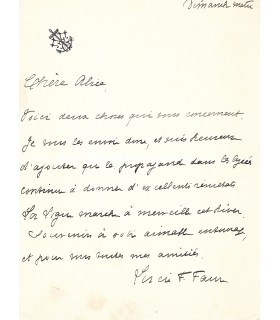 Dimanche matin
Chère Alice,
Voici deux choses qui vous concernent.
Je vous les envoie donc, et suis heureuse
d'ajouter que la propagande dans les lycées
continue à donner d'excellents résultats
La Ligue marche à merveille cet hiver.
Souvenir à votre aimable
et pour vous toutes mes amitiés.
F. Faure